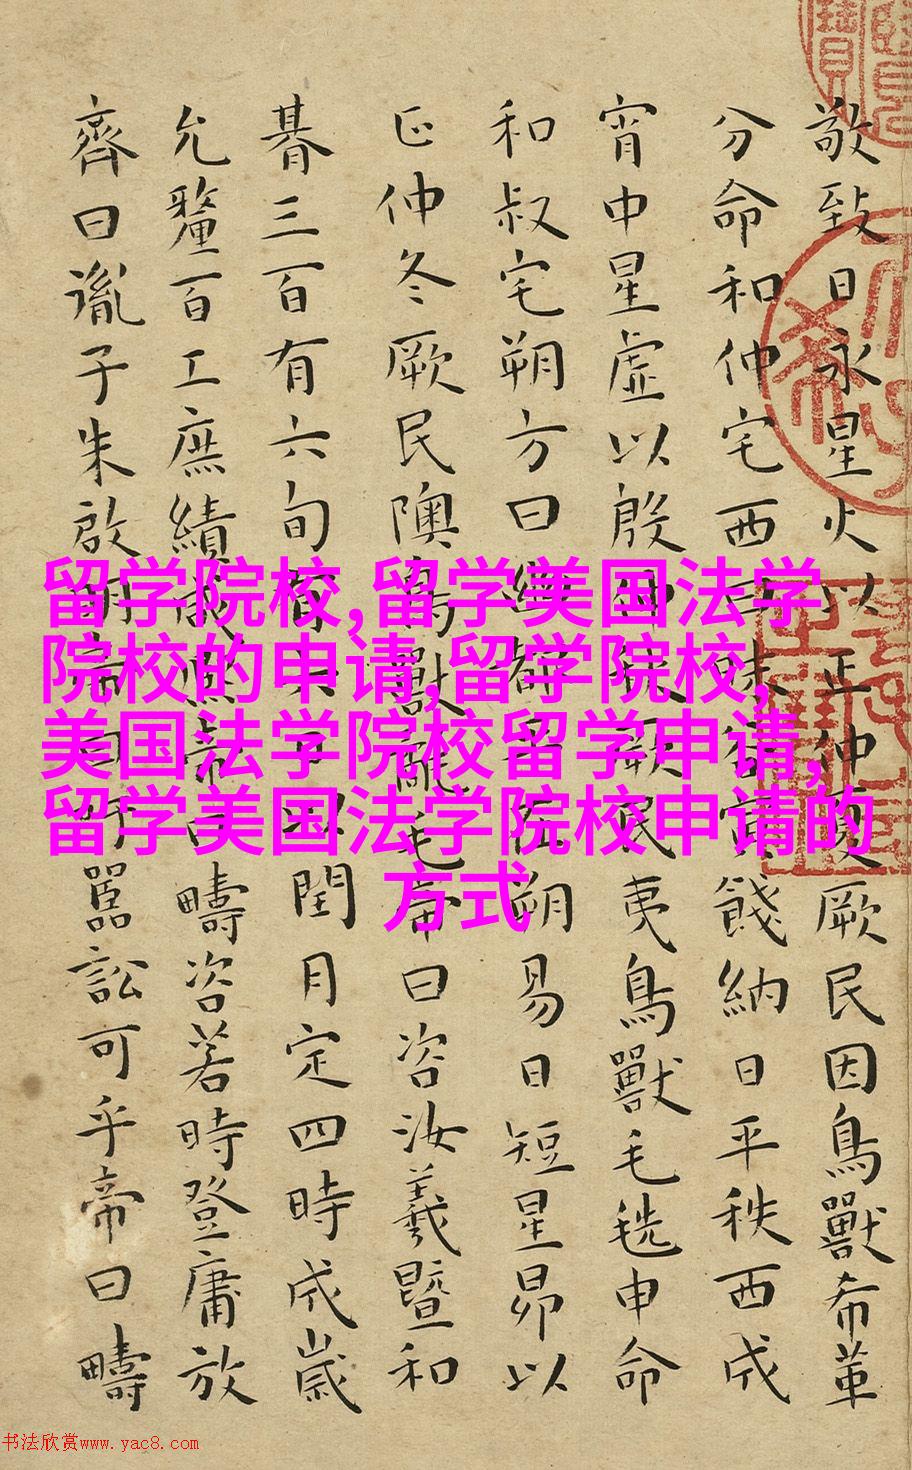 敬致日永星火以正仲夏厥民因鳥獸希革
分命和仲宅西曰昧谷寅餞納日平秩西成
宵中星虛以殷仲秋厥民夷鳥獸毛毨申命
和叔宅朔方曰幽都平在朔易日短星昴以
正仲冬厥民隩鳥獸氄毛帝曰咨汝羲暨和
朞三百有六旬有六日以閏月定四時成歲
允釐百工庶績咸熙帝曰疇咨若時登庸放
齊曰胤子朱啟明帝曰吁嚚訟可乎帝曰疇
留学院校,留学美国法学
院校的申请,留学院校,
美国法学院校留学申请,
留学美国法学院校申请的
方式
书法欣赏www.yac8.com